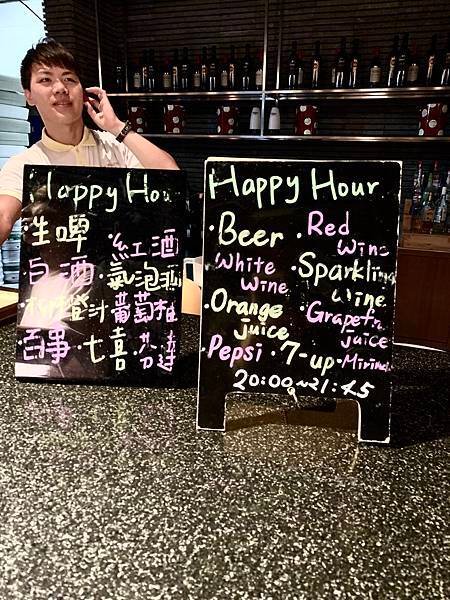 Happy Hou
生啤 · 紅酒
白酒 · 氣泡酒
· 柳橙汁 葡萄柚
百事 · 七喜 · 芬達
Happy Hour
· Beer · Red Wine
White Wine · Sparkling Wine
· Orange juice · Grapefr juice
· Pepsi · 7-up · Mirinda
20:00~21:45